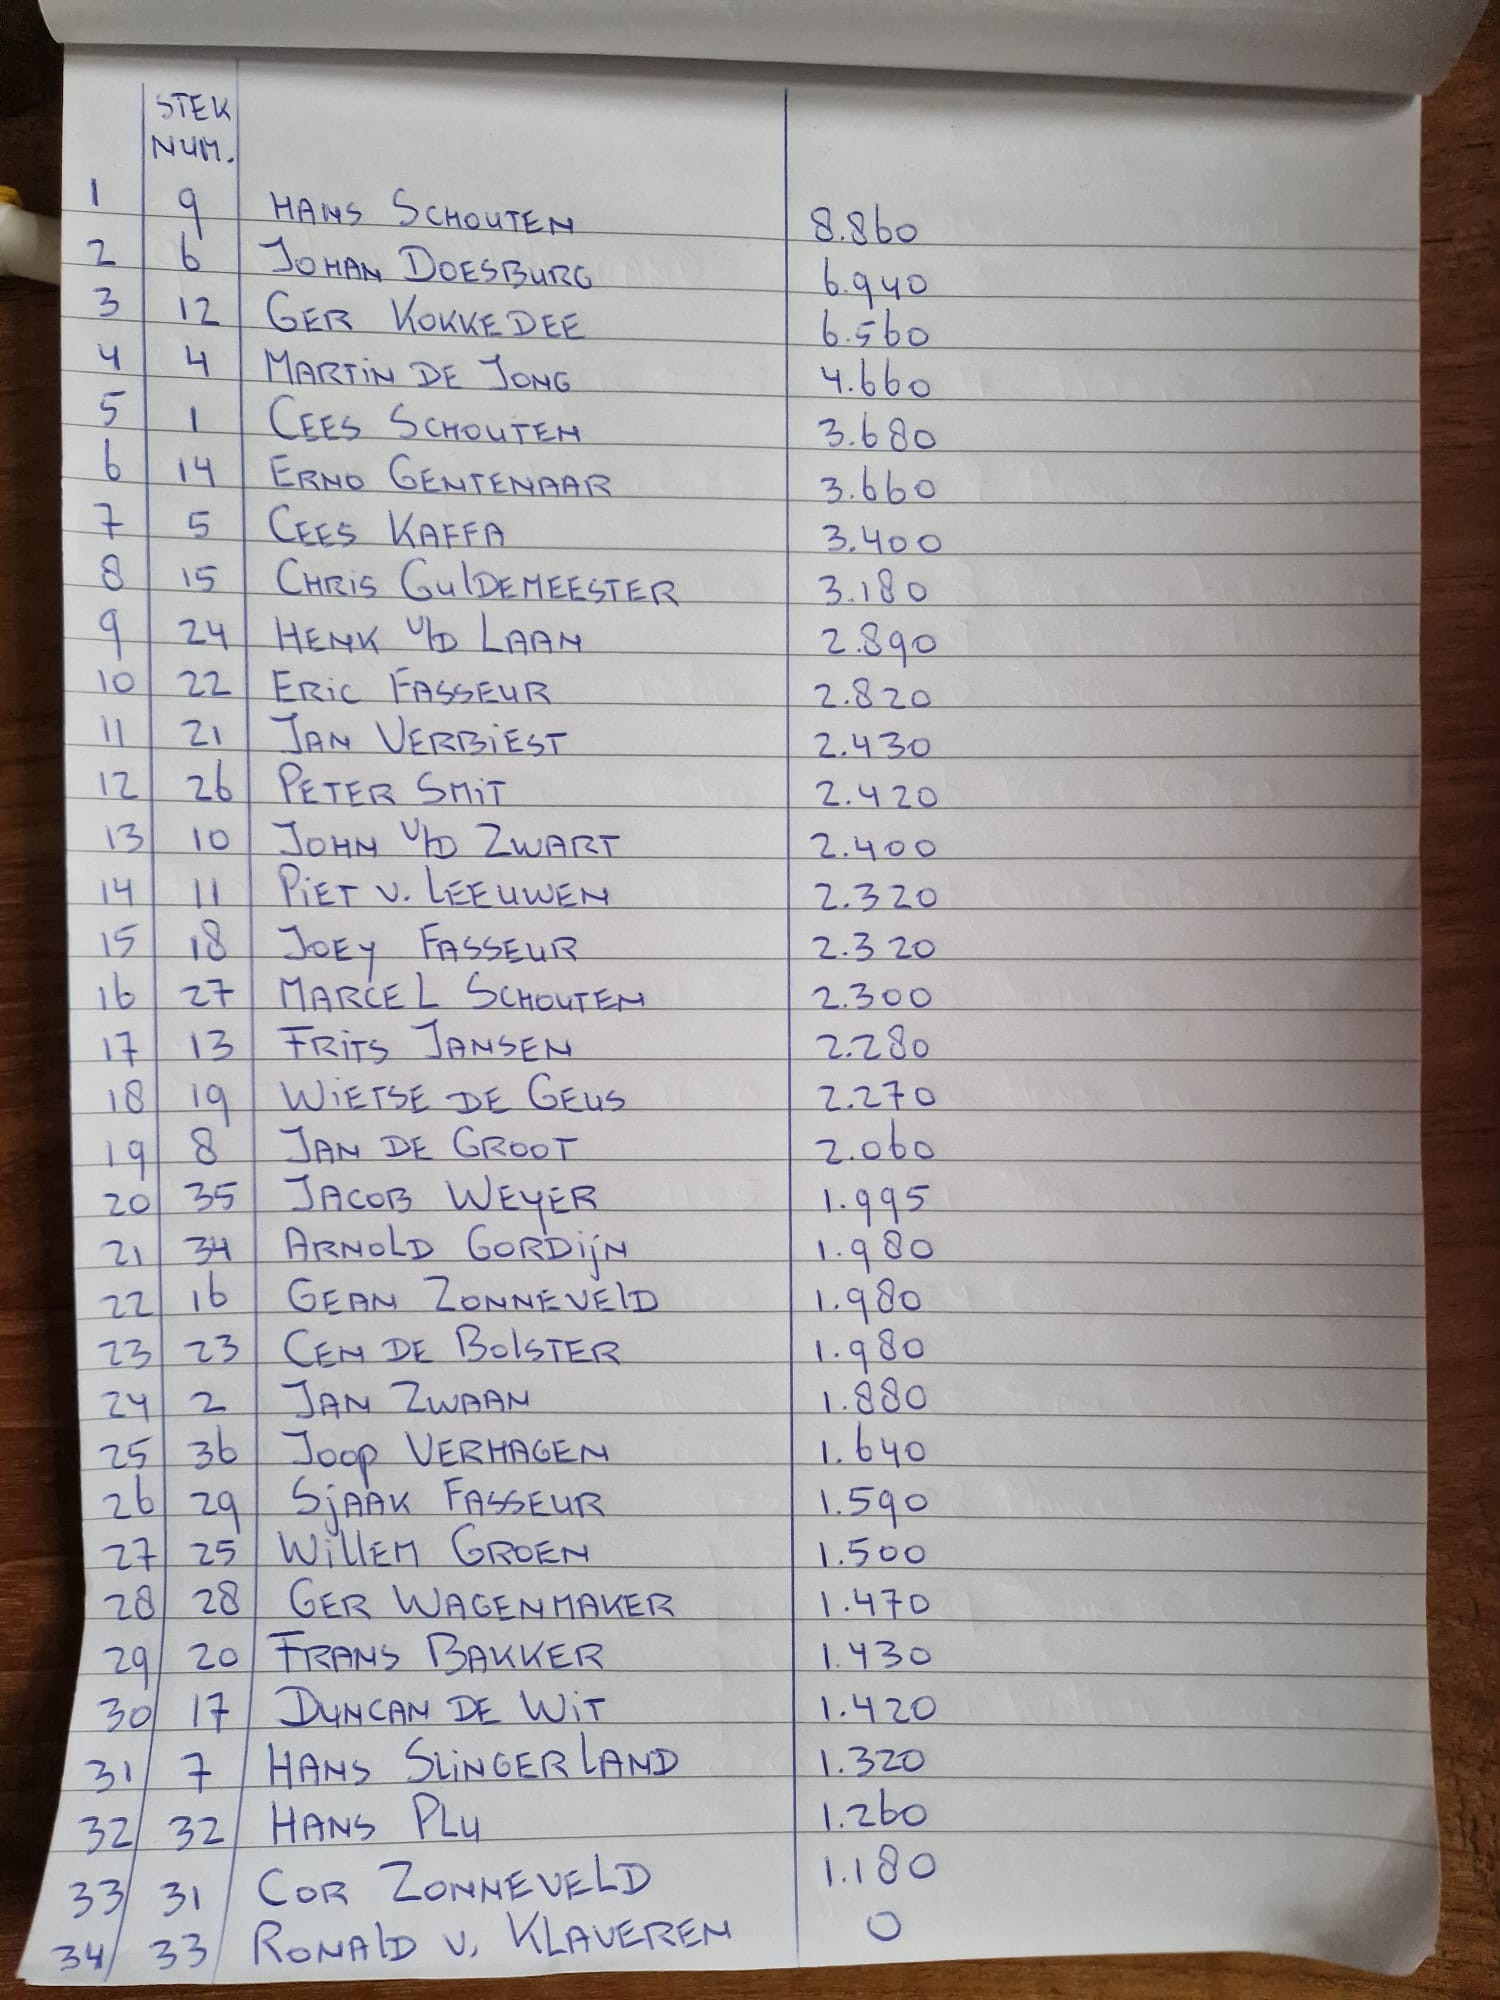 STEK
NUM.
1 9 HANS SCHOUTEN 8.860
2 6 JOHAN DOESBURG 6.940
3 12 GER KOKKEDEE 6.560
4 4 MARTIN DE JONG 4.660
5 1 CEES SCHOUTEN 3.680
6 14 ERNO GENTENAAR 3.660
7 5 CEES KAFFA 3.400
8 15 CHRIS GULDEMEESTER 3.180
9 24 HENK V/D LAAN 2.890
10 22 ERIC FASSEUR 2.820
11 21 JAN VERBIEST 2.430
12 26 PETER SMIT 2.420
13 10 JOHN V/D ZWART 2.400
14 11 PIET V. LEEUWEN 2.320
15 18 JOEY FASSEUR 2.320
16 27 MARCEL SCHOUTEN 2.300
17 13 FRITS JANSEN 2.280
18 19 WIETSE DE GEUS 2.270
19 8 JAN DE GROOT 2.060
20 35 JACOB WEYER 1.995
21 34 ARNOLD GORDIJN 1.980
22 16 GEAN ZONNEVELD 1.980
23 23 CEN DE BOLSTER 1.980
24 2 JAN ZWAAN 1.880
25 36 JOOP VERHAGEN 1.640
26 29 SJAAK FASSEUR 1.590
27 25 WILLEM GROEN 1.500
28 28 GER WAGENMAKER 1.470
29 20 FRANS BAKKER 1.430
30 17 DUNCAN DE WIT 1.420
31 7 HANS SLINGERLAND 1.320
32 32 HANS PLU 1.260
33 31 COR ZONNEVELD 1.180
34 33 RONALD V. KLAVEREN 0